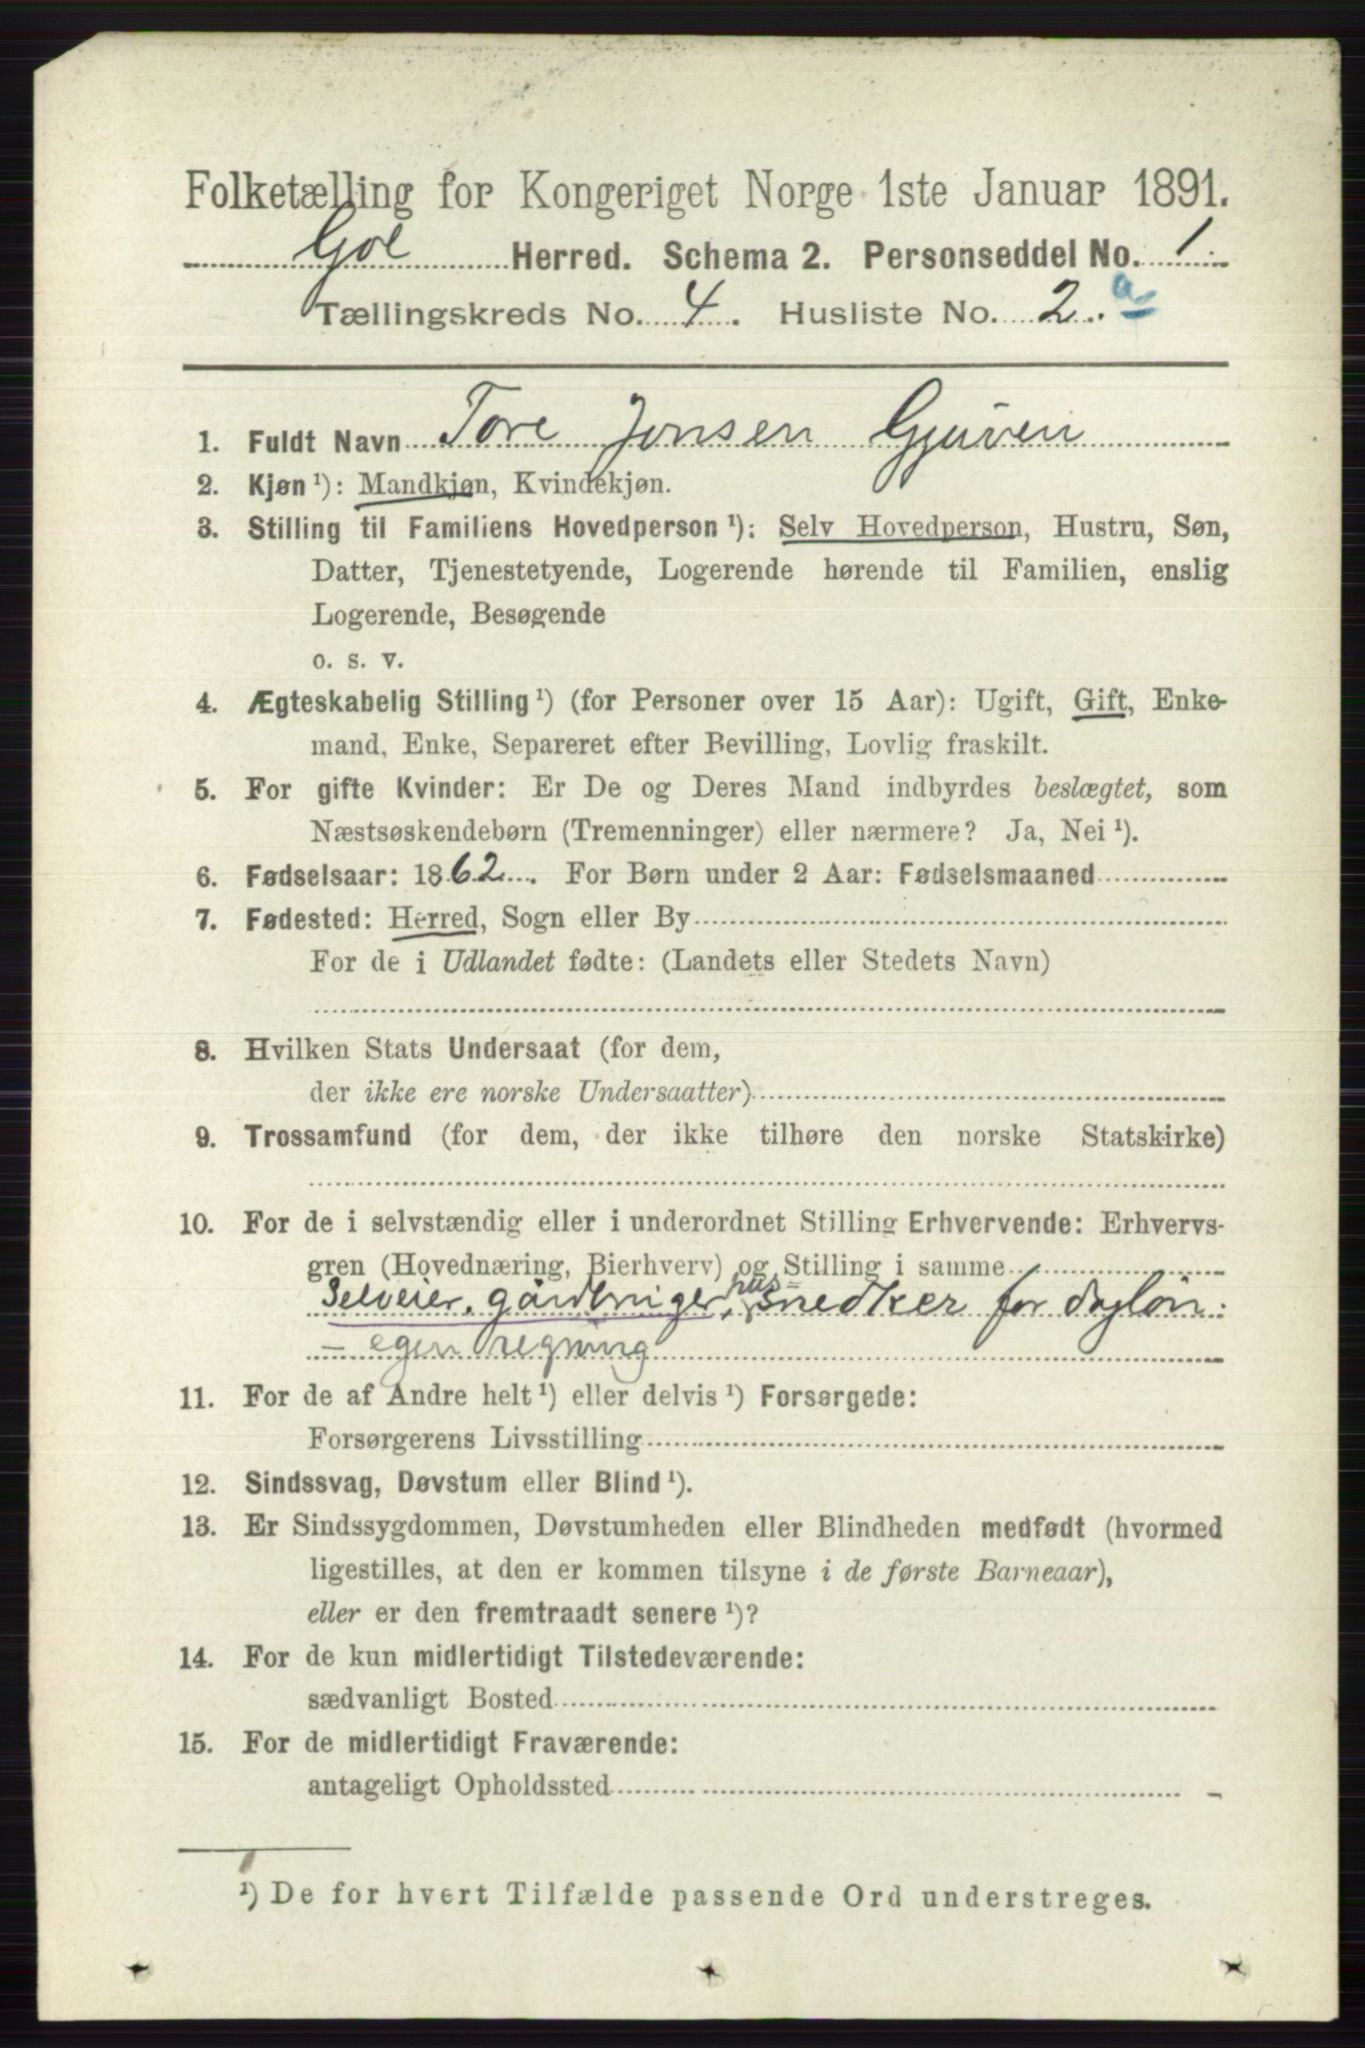 Folketælling for Kongeriget Norge 1ste Januar 1891.
Gol Herred. Schema 2. Personseddel No. 1.
Tællingskreds No. 4. Husliste No. 2. a
1. Fuldt Navn Tore Jonsen Gjuven
2. Kjøn ¹): Mandkjøn, Kvindekjøn.
3. Stilling til Familiens Hovedperson ¹): Selv Hovedperson, Hustru, Søn,
Datter, Tjenestetyende, Logerende hørende til Familien, enslig
Logerende, Besøgende
o. s. v.
4. Ægteskabelig Stilling ¹) (for Personer over 15 Aar): Ugift, Gift, Enke-
mand, Enke, Separeret efter Bevilling, Lovlig fraskilt.
5. For gifte Kvinder: Er De og Deres Mand indbyrdes beslægtet, som
Næstsøskendebørn (Tremenninger) eller nærmere? Ja, Nei ¹).
6. Fødselsaar: 1862. For Børn under 2 Aar: Fødselsmaaned
7. Fødested: Herred, Sogn eller By
For de i Udlandet fødte: (Landets eller Stedets Navn)
8. Hvilken Stats Undersaat (for dem,
der ikke ere norske Undersaatter)
9. Trossamfund (for dem, der ikke tilhøre den norske Statskirke)
10. For de i selvstændig eller i underordnet Stilling Erhvervende: Erhvervs-
gren (Hovednæring, Bierhverv) og Stilling i samme
Selveier, gårdbruger, hus=snedker for dagløn.
- egen regning
11. For de af Andre helt ¹) eller delvis ¹) Forsørgede:
Forsørgerens Livsstilling
12. Sindssvag, Døvstum eller Blind ¹).
13. Er Sindssygdommen, Døvstumheden eller Blindheden medfødt (hvormed
ligestilles, at den er kommen tilsyne i de første Barneaar),
eller er den fremtraadt senere ¹)?
14. For de kun midlertidigt Tilstedeværende:
sædvanligt Bosted
15. For de midlertidigt Fraværende:
antageligt Opholdssted
¹) De for hvert Tilfælde passende Ord understreges.